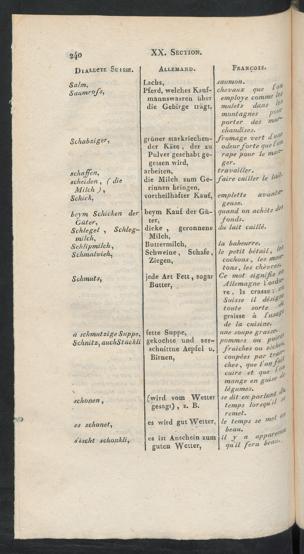 240 XX. Section.
Dialecte Suisse. Allemand. François.
Salm, Lachs, saumon.
Saumross, Pferd, welches Kauf- chevaux que l'on
mannswaaren über employe comme les
die Gebirge trägt, mulets dans les
montagnes pour
porter des mar-
chandises.
Schabziger, grüner starkriechen- fromage vert d'une
der Käse, der zu odeur forte que l'on
Pulver geschabt ge- rape pour le man-
gessen wird, ger.
schaffen, arbeiten, travailler.
scheiden, (die die Milch zum Ge- faire cailler le lait.
Milch), rinnen bringen,
Schick, vortheilhafter Kauf, emplette avanta-
geuse.
beym Schichen der beym Kauf der Gü- quand on achète des
Güter, ter, fonds.
Schlegel, Schleg- dicke, geronnene du lait caillé.
milch, Milch,
Schlipmilch, Buttermilch, la babeurre.
Schmalvieh, Schweine, Schafe, le petit bétail, les
Ziegen, cochons, les mou-
tons, les chèvres.
Schmutz, jede Art Fett, sogar Ce mot signifie en
Butter, Allemagne l'ordu-
re, la crasse; en
Suisse il désigne
toute sorte de
graisse à l'usage
de la cuisine.
a schmutzige Suppe, fette Suppe, une soupe grasse.
Schnitz, auch Stückli gekochte und zer- pommes ou poires
schnittne Aepfel u. fraiches ou sèches,
Birnen, coupées par tran-
ches, que l'on fait
cuire et que l'on
mange en guise de
légumes.
schonen, (wird vom Wetter se dit en parlant du
gesagt), z. B. temps lorsqu'il se
remet.
es schonet, es wird gut Wetter, le temps se met au
beau.
s'ischt schonhli, es ist Anschein zum il y a apparence
guten Wetter, qu'il fera beau.